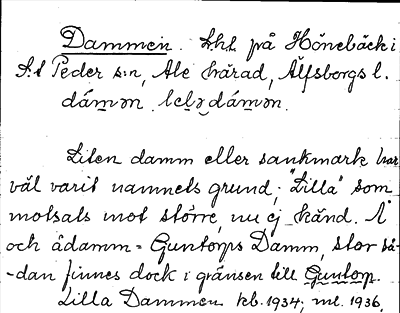 Dammen. Lht på Hönebäck i
S:t Peder s:n, Ale härad, Älfsborgs l.
dámən
Liten damm eller sankmark har
väl varit namnets grund; "Lilla" som
motsats mot större, nu ej känd. Å
och ådamm = Guntorps Damm, stor så-
-dan finnes dock i gränsen till Guntorp.
Lilla Dammen kb. 1934; ml. 1936.